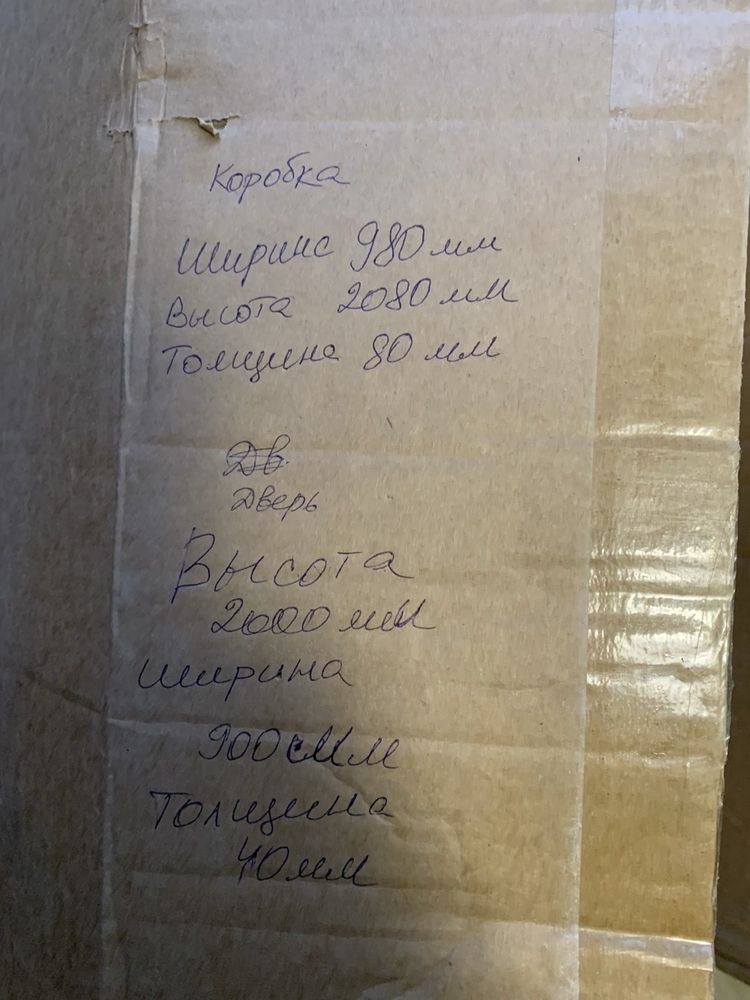 Коробка
Ширина 980 мм
Высота 2080 мм
Толщина 80 мм
Дв
Дверь
Высота
2000 мм
Ширина
900 мм
Толщина
40 мм